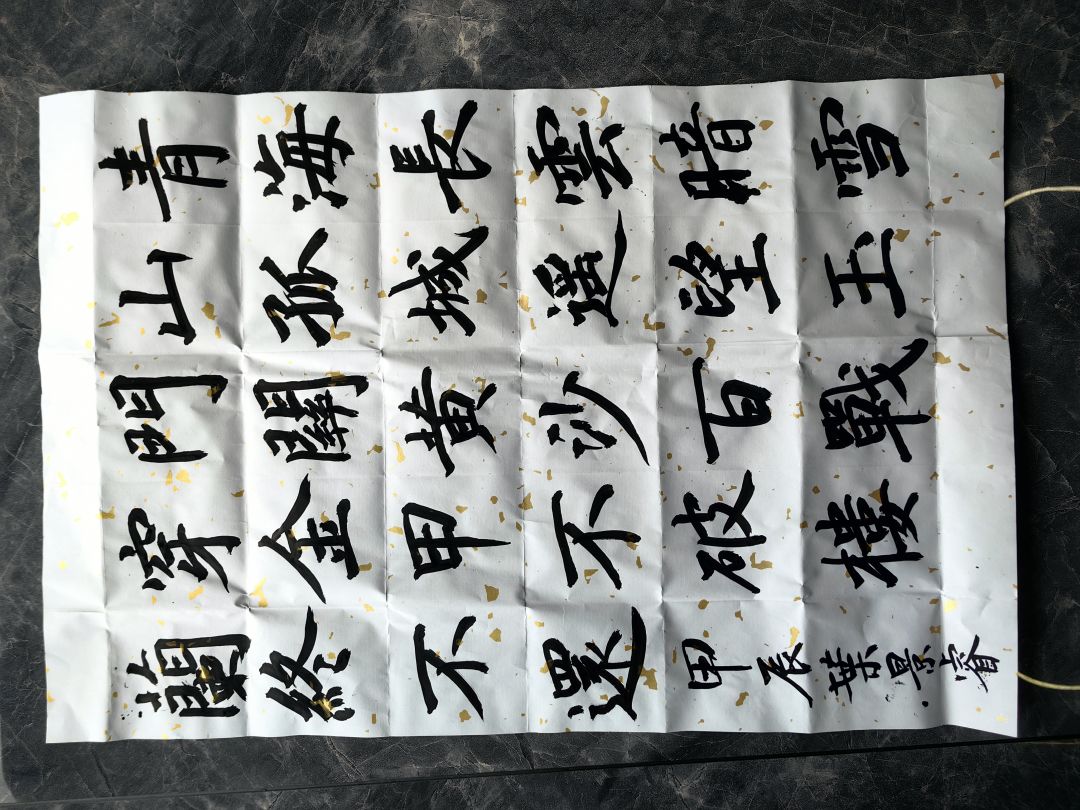 青海長雲暗雪
山孤城遥望玉
門關黃沙百戰
穿金甲不破樓
蘭終不還甲辰葉景睿